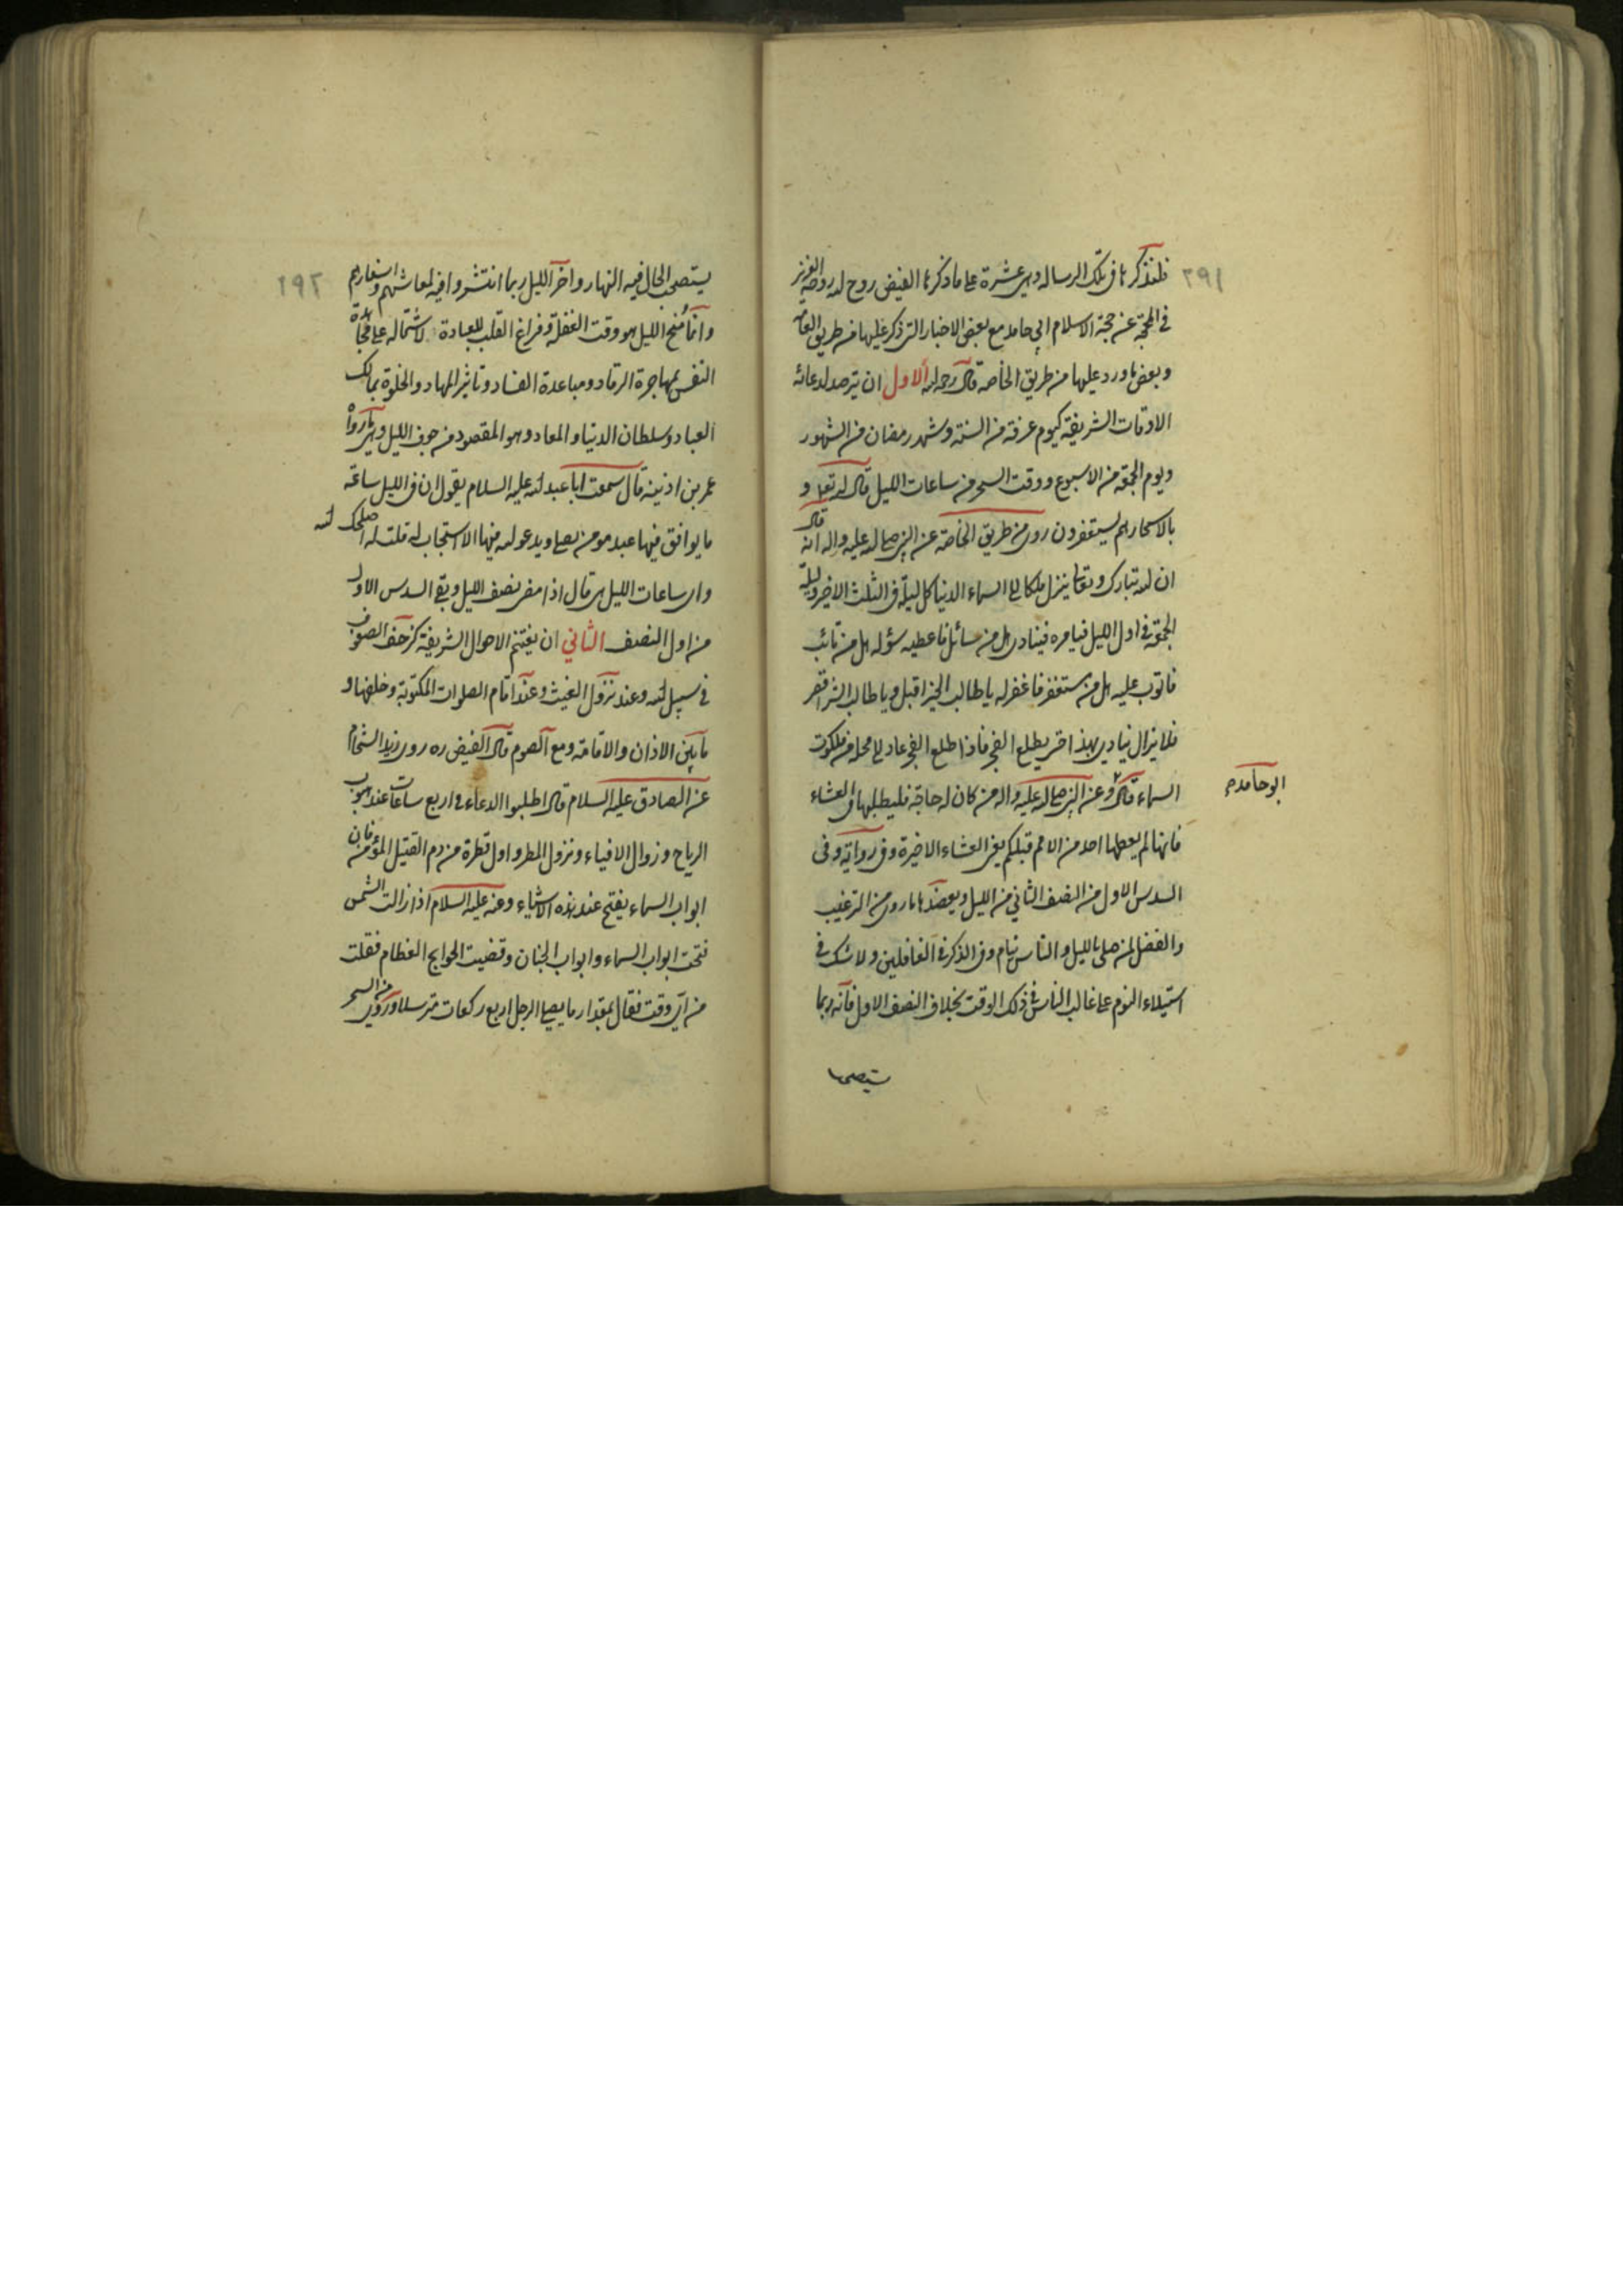 ٢٩١
فلنذكرها في تلك الرساله وهي عشرة على ما ذكرها الفيض روح الله روحه العزيز
في المحجة عن حجة الاسلام ابي حامد مع بعض الاخبار التي ذكر عليها من طريق العامه
وبعض ما ورد عليها من طريق الخاصه قال رحمه الله الاول ان يترصد لدعائه
الاوقات الشريفة كيوم عرفة من السنة وشهر رمضان من الشهور
ويوم الجمعة من الاسبوع ووقت السحر من ساعات الليل قال الله تعا و
بالاسحار هم يستغفرون روى من طريق الخاصة عن النبي صلى الله عليه واله انه قال
ان الله تبارك وتعا ينزل ملكا الى السماء الدنيا كل ليلة في الثلث الاخير وليلة
الجمعة في اول الليل فيامره فينادى هل من سائل فاعطيه سؤله هل من تائب
فاتوب عليه هل من مستغفر فاغفر له يا طالب الخير اقبل ويا طالب الشر اقصر
فلا يزال ينادى بهذا حتى يطلع الفجر فاذا طلع الفجر عاد الى محله من ملكوت
السماء قال وعن النبي صلى الله عليه واله من كان له حاجة فليطلبها في العشاء
ابو حامد
فانها لم يعطها احد من الامم قبلكم يعنى العشاء الاخيرة وفى رواية وفى
السدس الاول من النصف الثاني من الليل ويعضدها ما روى من الترغيب
والفضل لمن صلى بالليل والناس نيام وفى الذكر في الغافلين ولا شك في
استيلاء النوم على غالب الناس في ذلك الوقت بخلاف النصف الاول فانه ربما
يستصحب
٢٩٢
يستصحب الحال فيه النهار واخر الليل ربما انتشروا فيه لمعاشهم واسفارهم
وانما مخ الليل هو وقت الغفلة وفراغ القلب للعبادة لاشتماله على مجاهدة
النفس بمهاجرة الرقاد ومباعدة الفساد وتاثير المهاد والخلوة بمالك
العباد وسلطان الدنيا والمعاد وهو المقصود من جوف الليل وهى ما رواه
عمر بن اذينه قال سمعت ابا عبد الله عليه السلام يقول ان فى الليل ساعة
ما يوافق فيها عبد مومن يصلى ويدعو الله فيها الا استجاب له قلت له اصلحك الله
واى ساعات الليل هى قال اذا مضى نصف الليل وبقى السدس الاول
من اول النصف الثاني ان يغتنم الاحوال الشريفة كزحف الصفوف
في سبيل الله وعند نزول الغيث وعند اقام الصلوات المكتوبة وخلفها و
ما بين الاذان والاقامة ومع الصوم قال الفيض ره روى زيد الشحام
عن الصادق عليه السلام قال اطلبوا الدعاء فى اربع ساعات عند هبوب
الرياح وزوال الافياء ونزول المطر واول قطرة من دم القتيل المؤمن فان
ابواب السماء يفتح عند هذه الاشياء وعنه عليه السلام اذا زالت الشمس
فتحت ابواب السماء وابواب الجنان وقضيت الحوايج العظام فقلت
من اي وقت فقال بمقدار ما يصلى الرجل اربع ركعات مترسلا وروى من السحر